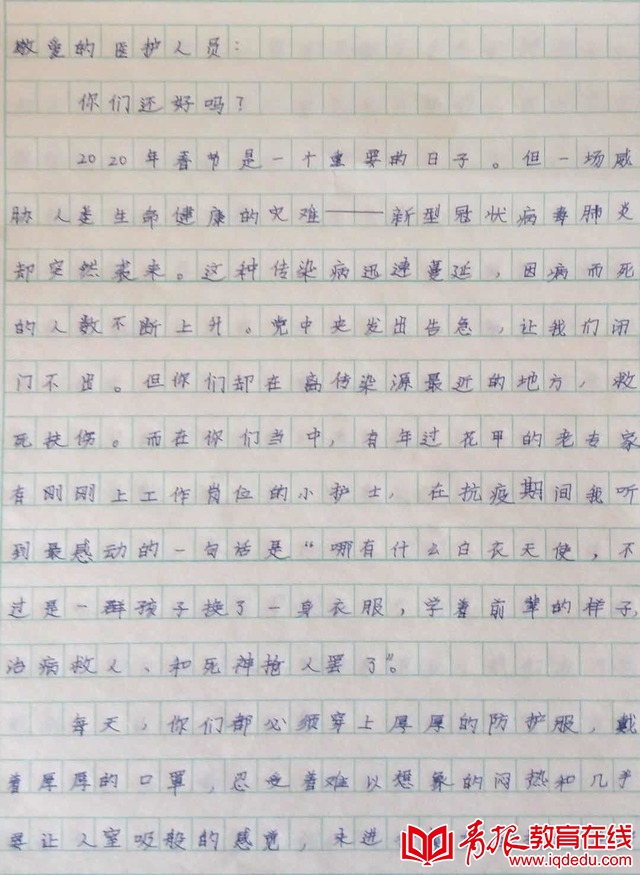 敬爱的医护人员：
你们还好吗？
2020年春节是一个重要的日子。但一场威
胁人类生命健康的灾难——新型冠状病毒肺炎
却突然袭来。这种传染病迅速蔓延，因病而死
的人数不断上升。党中央发出告急，让我们闭
门不出。但你们却在离传染源最近的地方，救
死扶伤。而在你们当中，有年过花甲的老专家
有刚刚上工作岗位的小护士，在抗疫期间我听
到最感动的一句话是“哪有什么白衣天使，不
过是一群孩子换了一身衣服，学着前辈的样子，
治病救人、和死神抢人罢了”。
每天，你们都必须穿上厚厚的防护服，戴
着厚厚的口罩，忍受着难以想象的闷热和几乎
要让人窒吸般的感觉，来进
青报教育在线
www.iqdedu.com